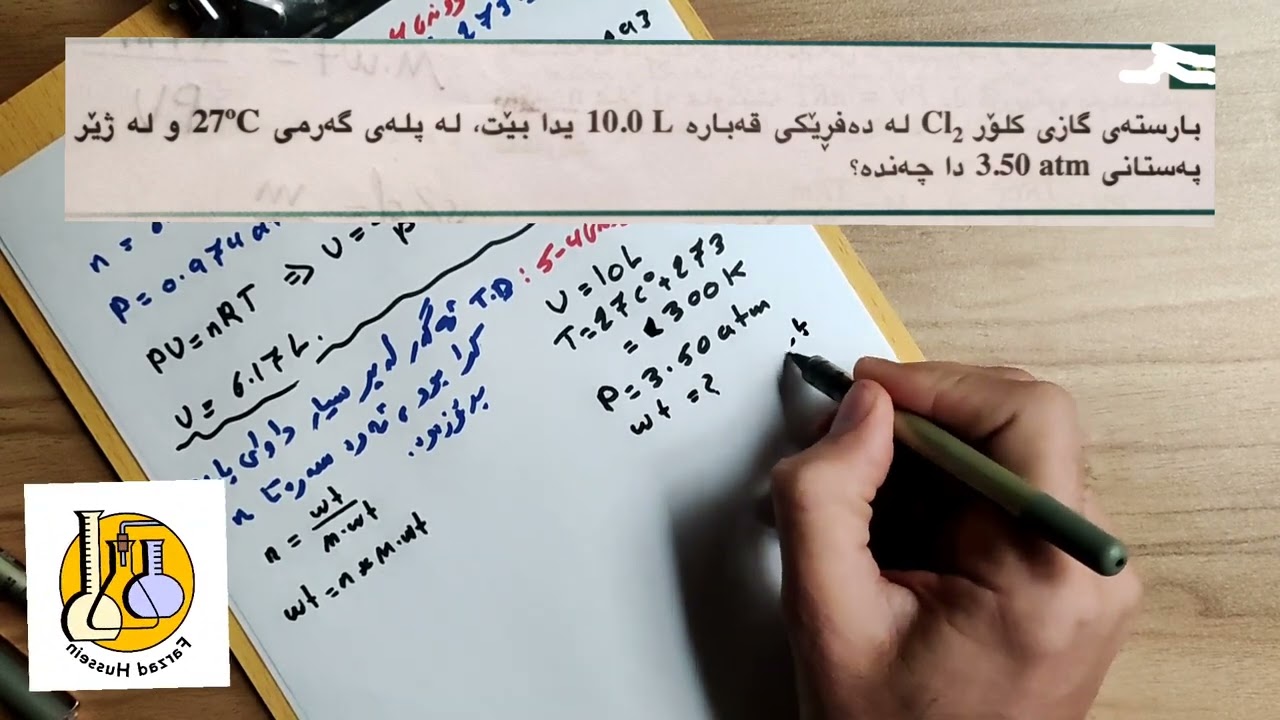 بارستەی گازی کلۆر Cl₂ لە دەفرێکی قەبارە 10.0 L یدا بێت، لە پلەی گەرمی 27ºC و لە ژێر
پەستانی 3.50 atm دا چەندە؟
273
n =
P = 0.974
PV = nRT => V =
V = 6.17 L.
T.D :
ئەگەر لە پرسیار داوای
کرا بوو، ئەوە سەرەتا n
بدۆزەوە.
n = wt / M.wt
wt = n * M.wt
V = 10 L
T = 27 C° + 273
= 300 K
P = 3.50 atm
wt = ?
Farzad Hussein